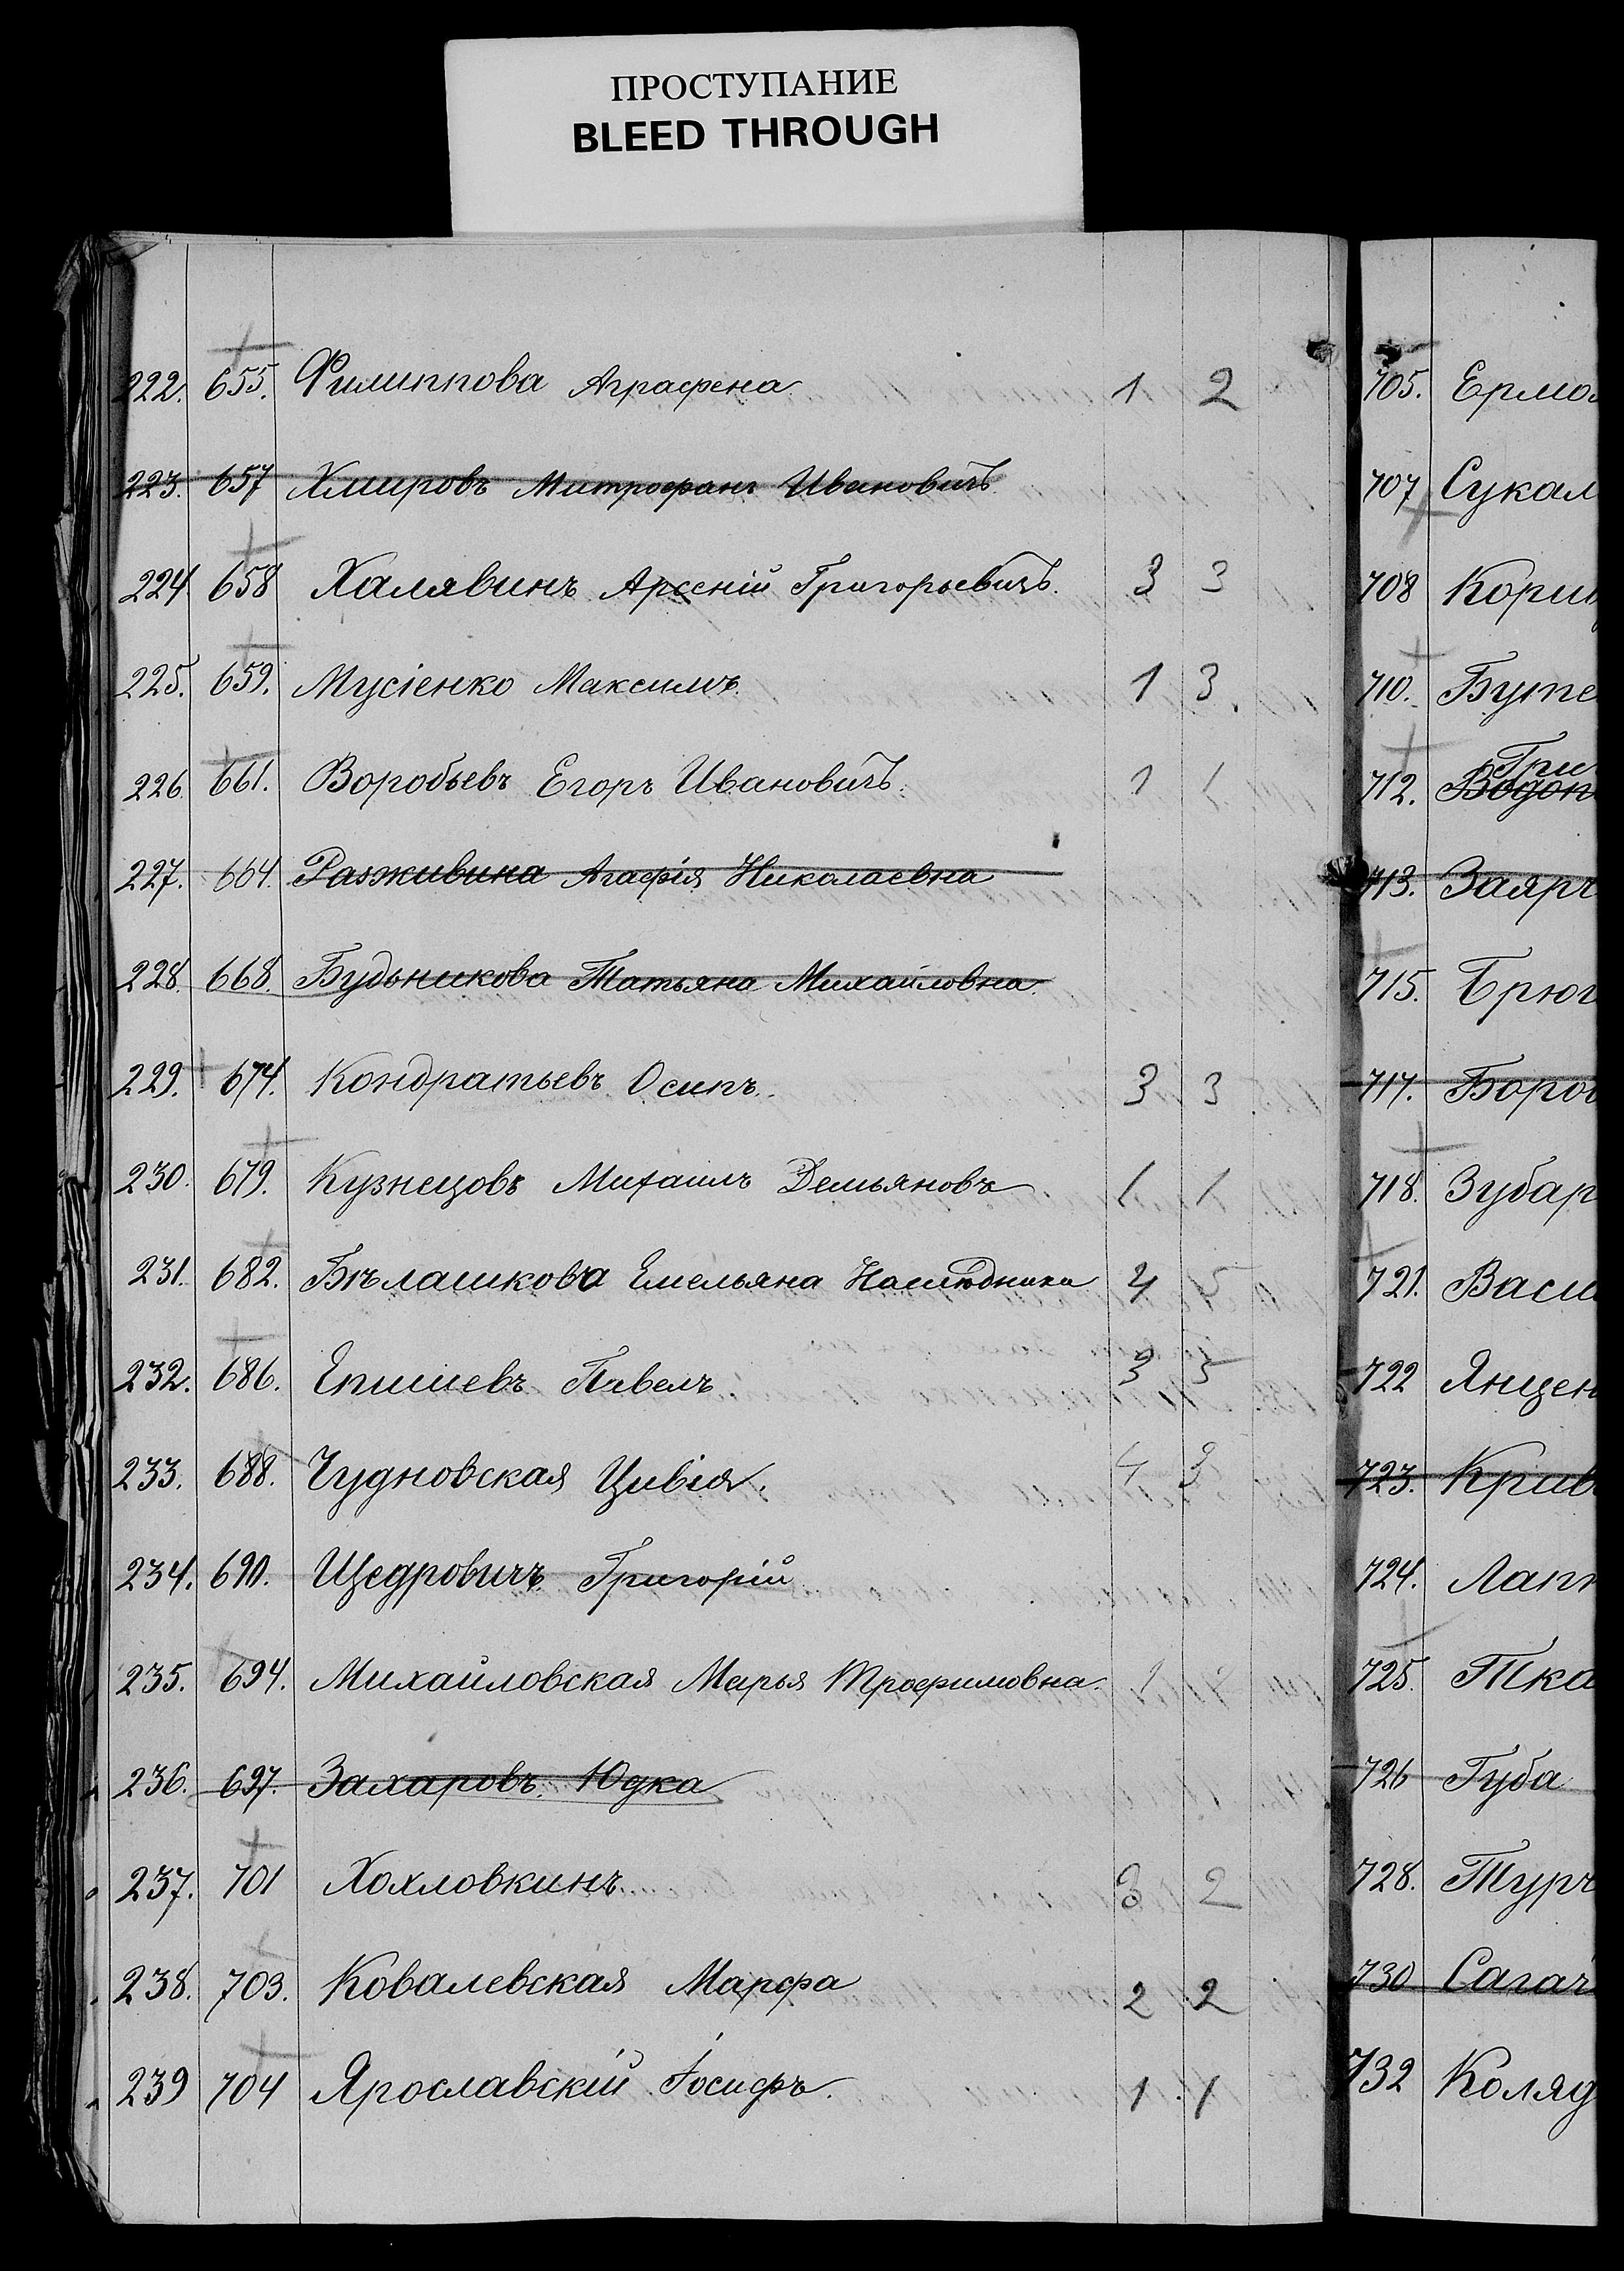 ПРОСТУПАНИЕ
BLEED THROUGH
222. 655. Филиппова Аграфена. 1 2
223. 657 Хмировъ Митрофанъ Ивановичъ.
224 658 Халявинъ Арсеній Григорьевичъ. 3 3
225. 659. Мусіенко Максимъ. 1 3
226. 661. Воробьевъ Егоръ Ивановичъ. 1 1
227. 664. Разживина Агафія Николаевна
228. 668. Будьникова Татьяна Михайловна.
229. 674. Кондратьевъ Осипъ. 3 3
230. 679. Кузнецовъ Михаилъ Демьяновъ 1 1
231. 682. Бѣлашкова Емельяна Наслѣдники 4 5
232. 686. Епишевъ Павелъ 3 5
233. 688. Чудновская Цивія. 4 3
234. 690. Щедровичъ Григорій
235. 694. Михайловская Марья Трофимовна. 1
236. 697. Захаровъ Юдка
237. 701 Хохловкинъ 3 2
238. 703. Ковалевская Марфа 2 2
239 704 Ярославскій Іосифъ. 1 1
705. Ермол
707 Сукал
708 Кори
710. Буте
Гри
712. Водоп
713. Заярч
715. Брюг
717. Боров
718. Зубар
721. Васи
722 Янцен
723. Крив
724. Лапп
725. Тка
726 Губа
728. Турч
730 Сагач
732 Коляд